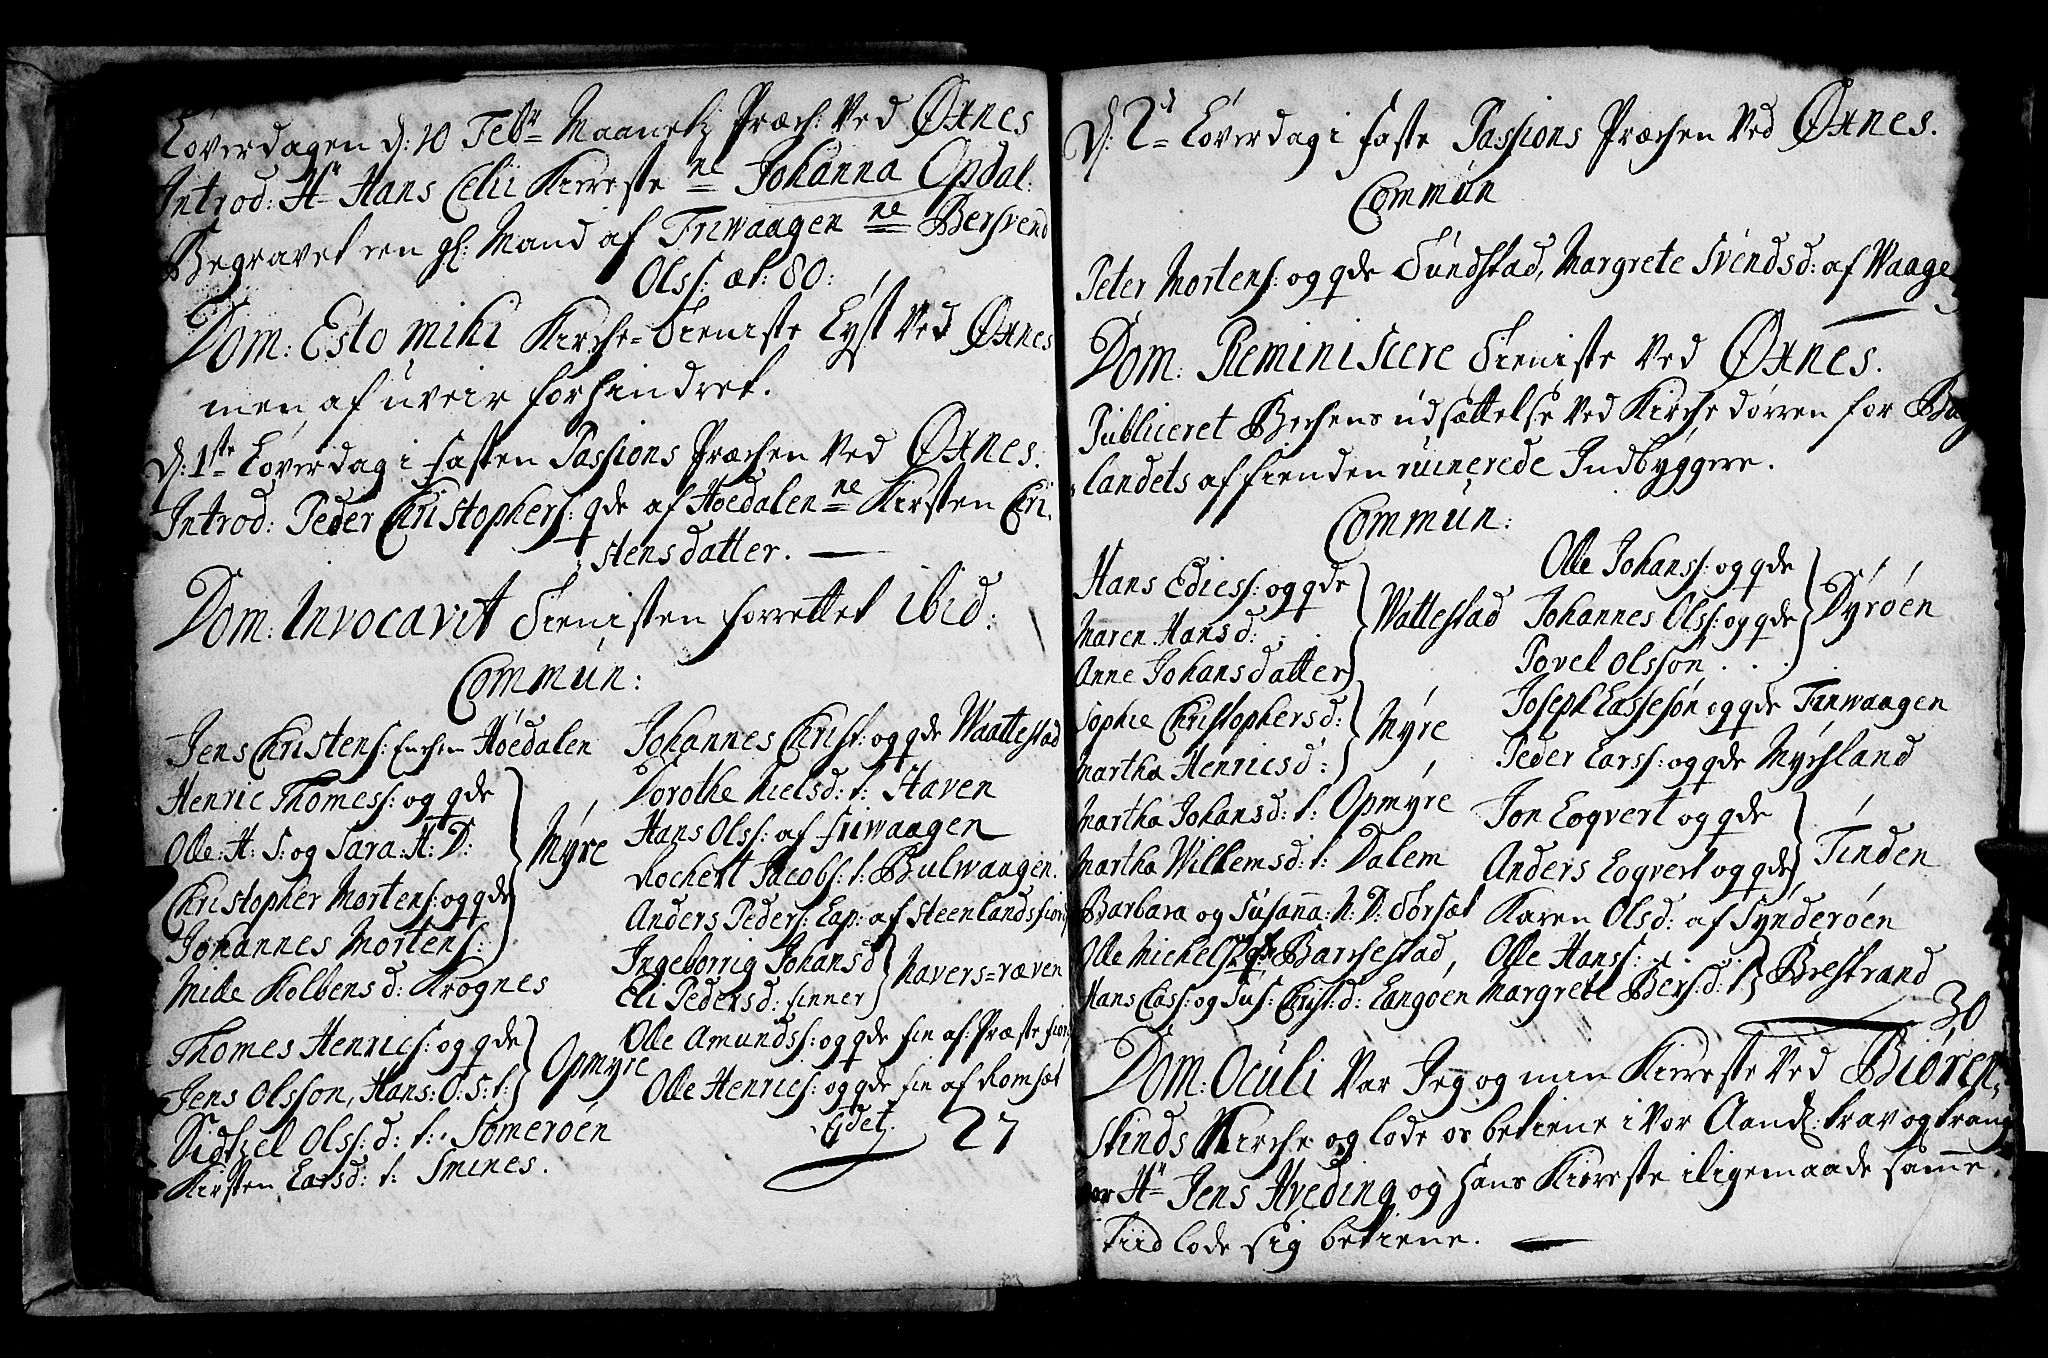 Löverdagen d: 10 Febr Maanetz Præch: Ved Øxnes
Introd: Hr Hans Celii Kiereste ne Johanna Opdal:
Begravet een gl: Mand af Friwaagen ne Bersvend
Olss: æt: 80:
Dom: Esto mihi Kirche=Tieniste Lyst Ved Øxnes
men af uveir forhindret.
d: 1ste Löverdag i fasten Passions Præchen Ved Øxnes.
Introd: Peder Christophers: qde af Hoedalen ne Kirsten Chri-
stensdatter.
Dom: Invocavit Tienisten forrettet ibid:
Commun:
Jens Christens: Enchem Höedalen
Henric Thomess: og qde
Olle: H: S: og Sara: H: D:
Christopher Mortens: og qde
Johannes Mortens:
Myre
Mille Kolbensd: Krognes
Thomes Henrics: og qde
Jens Olsson, Hans: O: S: t:
Opmyre
Sidtzel Olss: d: t: Someröen
Kirsten Larsd: t: Smines.
Johannes Christ: og qde Waattestad
Dorothe Nielsd: t: Haven
Hans Olss: af Friwaagen
Rochert Jacobs: t: Bulwaagen.
Anders Peders: Lap: af Steenlandsfiord
Ingeborrig Johansd
Eli Pedersd: finner
Navers=ræven
Olle Amundss: og qde fin af: Præstefior
Olle Henrics: og qde fin af Romsæt
27
d: 2d Löverdag i faste Passions Præchen Ved Øxnes.
Commun
Peter Mortens: og qde Sundstad, Margrete Svendsd: af Waage
Dom: Reminiscere Tieniste Ved Øxnes.
Publiceret Bechens udsættelse Ved Kirche dørren for
landets af fienden ruinerede Indbyggere.
Commun:
Hans Edicss: og qde
Maren Hansd:
Anne Johansdatter
Wattestad
Sophie Christophersd:
Martha Henricsd:
Myre
Martha Johansd: t: Opmyre
Martha Willemsd: t: Dalem
Barbara og Susanna: N: D: Sorsæt
Olle Michels: qde Barchestad,
Hans Lass: og Sus: Christ: d: Langoen
Olle Johanss: og qde
Johannes Olss: og qde
Povel Olsson
Dyröen
Joseph Lasseson og qde Tinwaagen
Peder Larss: og qde Myrsland
Jon Loqvert og qde
Anders Loqvert og qde
Tinden
Karen Olsd: af Synderöen
Olle Hanss:
Margrete Bersd: t:
Brestrand
30
Dom: Oculi Var Jeg og min Kiereste Ved Biören-
skinds Kirche og lode os betiene i Vor Aandl: trav og trang
Hr Jens Hveding og Hans Kiereste iligemaade samme
Tiid lode sig betiene.